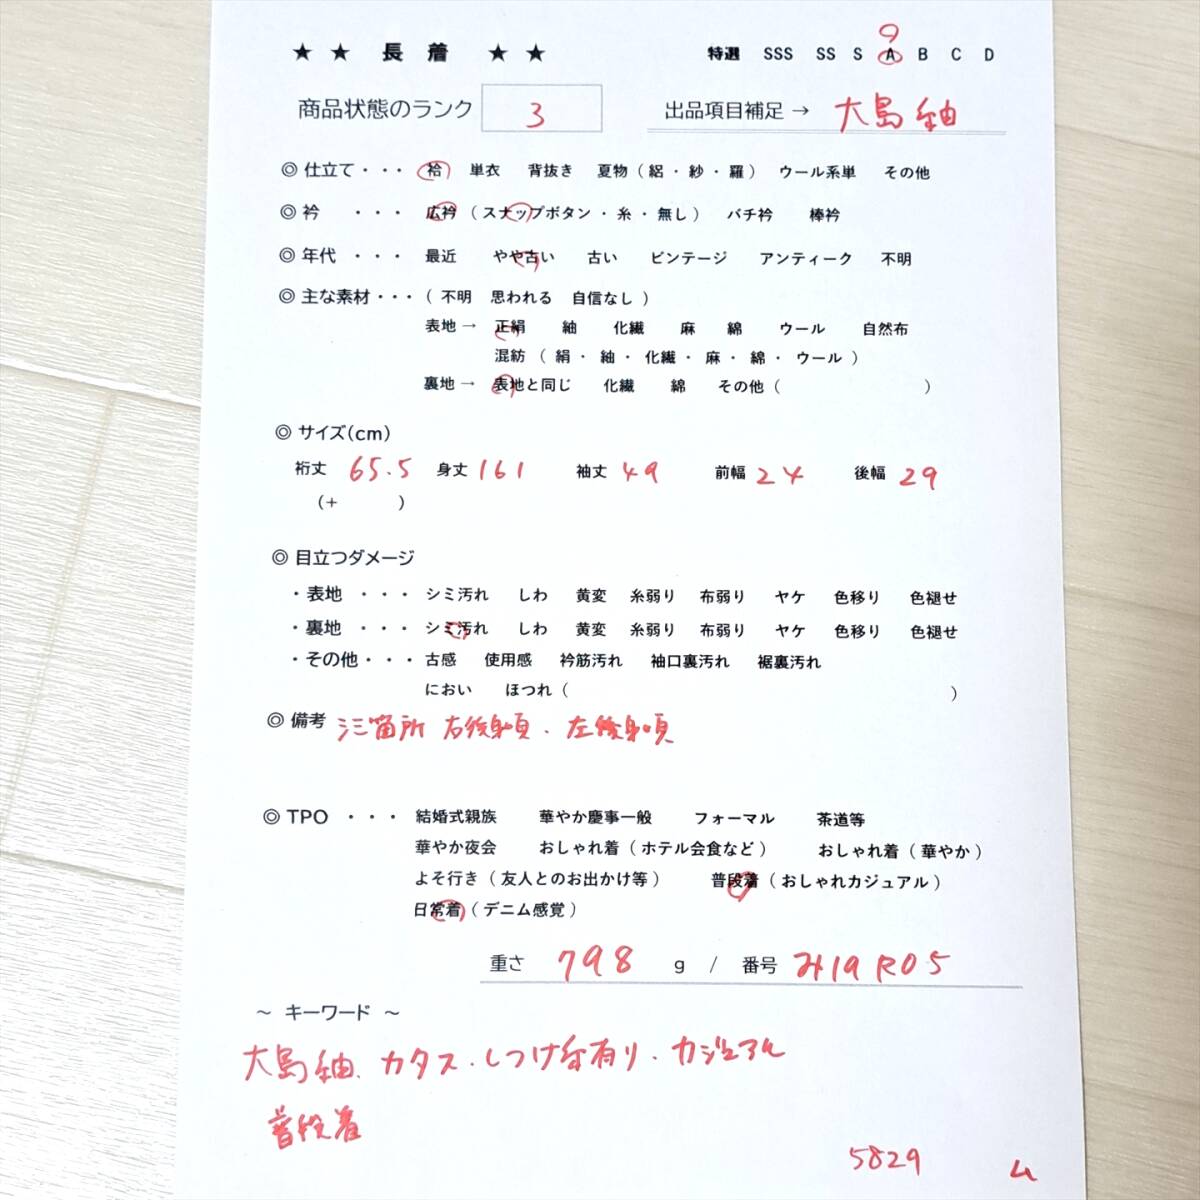 ★ ★ 長 着 ★ ★ 特選 SSS SS S A B C D
商品状態のランク 3 出品項目補足 → 大島紬
◎ 仕立て ・・・ 袷 単衣 背抜き 夏物 ( 絽 ・ 紗 ・ 羅 ) ウール系単 その他
◎ 衿 ・・・ 広衿 ( スナップボタン ・ 糸 ・ 無し ) バチ衿 棒衿
◎ 年代 ・・・ 最近 やや古い 古い ビンテージ アンティーク 不明
◎ 主な素材 ・・・ ( 不明 思われる 自信なし )
表地 → 正絹 紬 化繊 麻 綿 ウール 自然布
混紡 ( 絹 ・ 紬 ・ 化繊 ・ 麻 ・ 綿 ・ ウール )
裏地 → 表地と同じ 化繊 綿 その他 ( )
◎ サイズ(cm)
裄丈 65.5 身丈 161 袖丈 49 前幅 24 後幅 29
(+ )
◎ 目立つダメージ
・ 表地 ・・・ シミ汚れ しわ 黄変 糸弱り 布弱り ヤケ 色移り 色褪せ
・ 裏地 ・・・ シミ汚れ しわ 黄変 糸弱り 布弱り ヤケ 色移り 色褪せ
・ その他 ・・・ 古感 使用感 衿筋汚れ 袖口裏汚れ 裾裏汚れ
におい ほつれ ( )
◎ 備考 シミ箇所 右後身頃、左後身頃
◎ TPO ・・・ 結婚式親族 華やか慶事一般 フォーマル 茶道等
華やか夜会 おしゃれ着 ( ホテル会食など ) おしゃれ着 ( 華やか )
よそ行き ( 友人とのお出かけ等 ) 普段着 ( おしゃれカジュアル )
日常着 ( デニム感覚 )
重さ 798 g / 番号 み19R05
~ キーワード ~
大島紬、カタス・しつけ糸有り・カジュアル
普段着
5829 ム